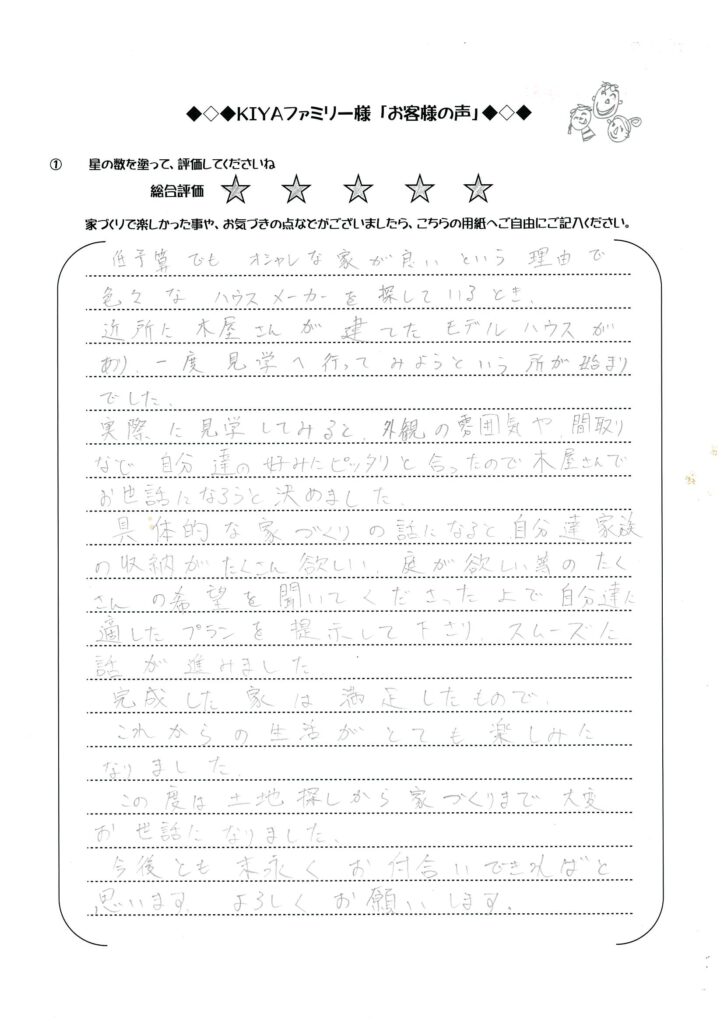 ◆◇◆KIYAファミリー様「お客様の声」◆◇◆
① 星の数を塗って、評価してくださいね
総合評価 ☆ ☆ ☆ ☆ ☆
家づくりで楽しかった事や、お気づきの点などがございましたら、こちらの用紙へご自由にご記入ください。
低予算でも オシャレな家が良いという理由で
色々な ハウスメーカーを探しているとき、
近所に木屋さんが建てたモデルハウスが
あり、一度見学へ行ってみようという所が始まり
でした。
実際に見学してみると、外観の雰囲気や、間取り
などで自分達の好みにピッタリと合ったので木屋さんで
お世話になろうと決めました。
具体的な家づくりの話になると自分達家族
の収納がたくさん欲しい、庭が欲しい等のたく
さんの希望を聞いてくださった上で自分達に
適したプランを提示して下さり、スムーズに
話が進みました
完成した家は満足したもので、
これからの生活がとても楽しみに
なりました。
この度は土地探しから家づくりまで大変
お世話になりました。
今後とも末永くお付合いできればと
思います。よろしくお願いします。